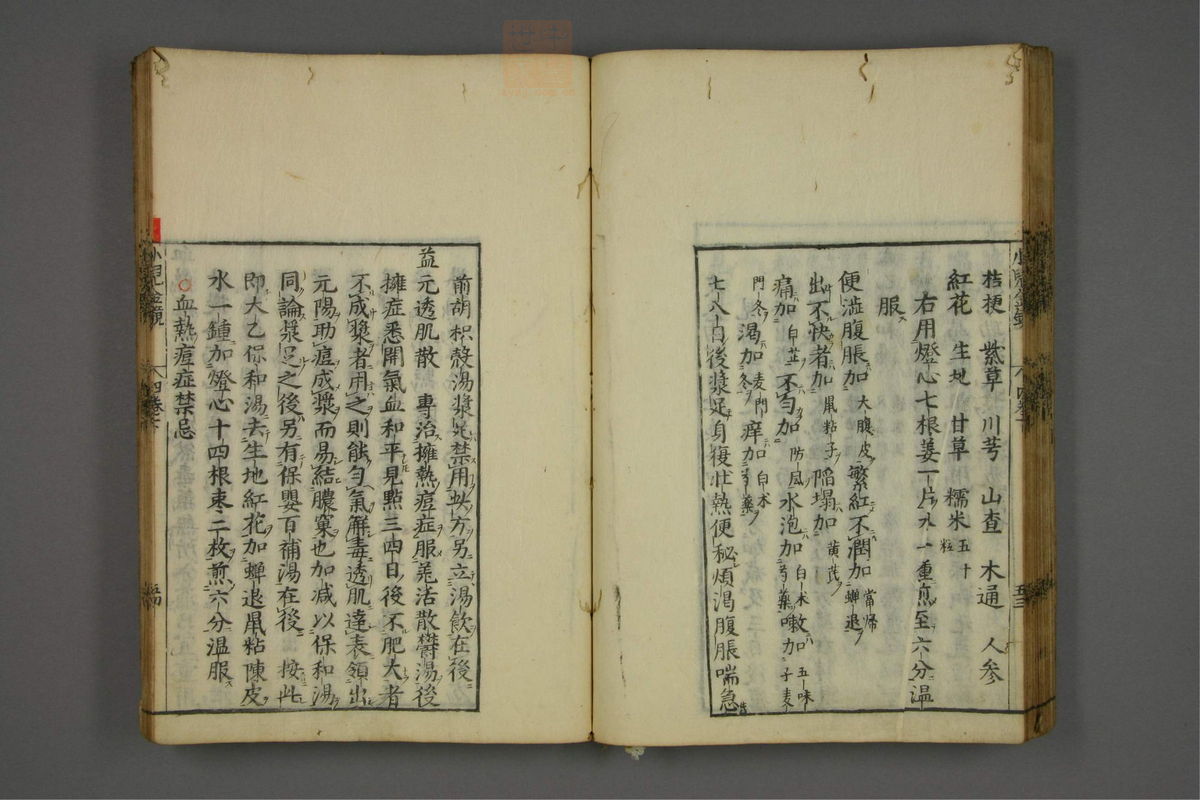 桔梗 紫草 川芎 山查 木通 人参
紅花 生地 甘草 糯米五十粒
右用燈心七根姜一片水一鍾煎至六分温
服
便澁腹脹加大腹皮繁紅不潤加當帰蝉退
出不快者加鼠粘子陥塌加黄芪
痛加白芷不匀加防風水泡加白朮芍薬嗽加五味子麦
門冬渇加麦門冬痒加白朮芍薬
七八日後漿足身復壮熱便秘煩渇腹脹喘急
前胡枳殻湯漿足禁用此方另立湯飲在後
益元透肌散 專治擁熱痘症服羌活散欝湯後
擁症悉開氣血和平見點三四日後不肥大者
不成漿者用之則能匀氣解毒透肌達表領出
元陽助痘成漿而易結膿窠也加减以保和湯
同論漿足之後另有保嬰百補湯在後 按此
即大乙保和湯去生地紅花加蝉退鼠粘陳皮
水一鍾加燈心十四根枣二枚煎六分温服
血熱痘症禁忌